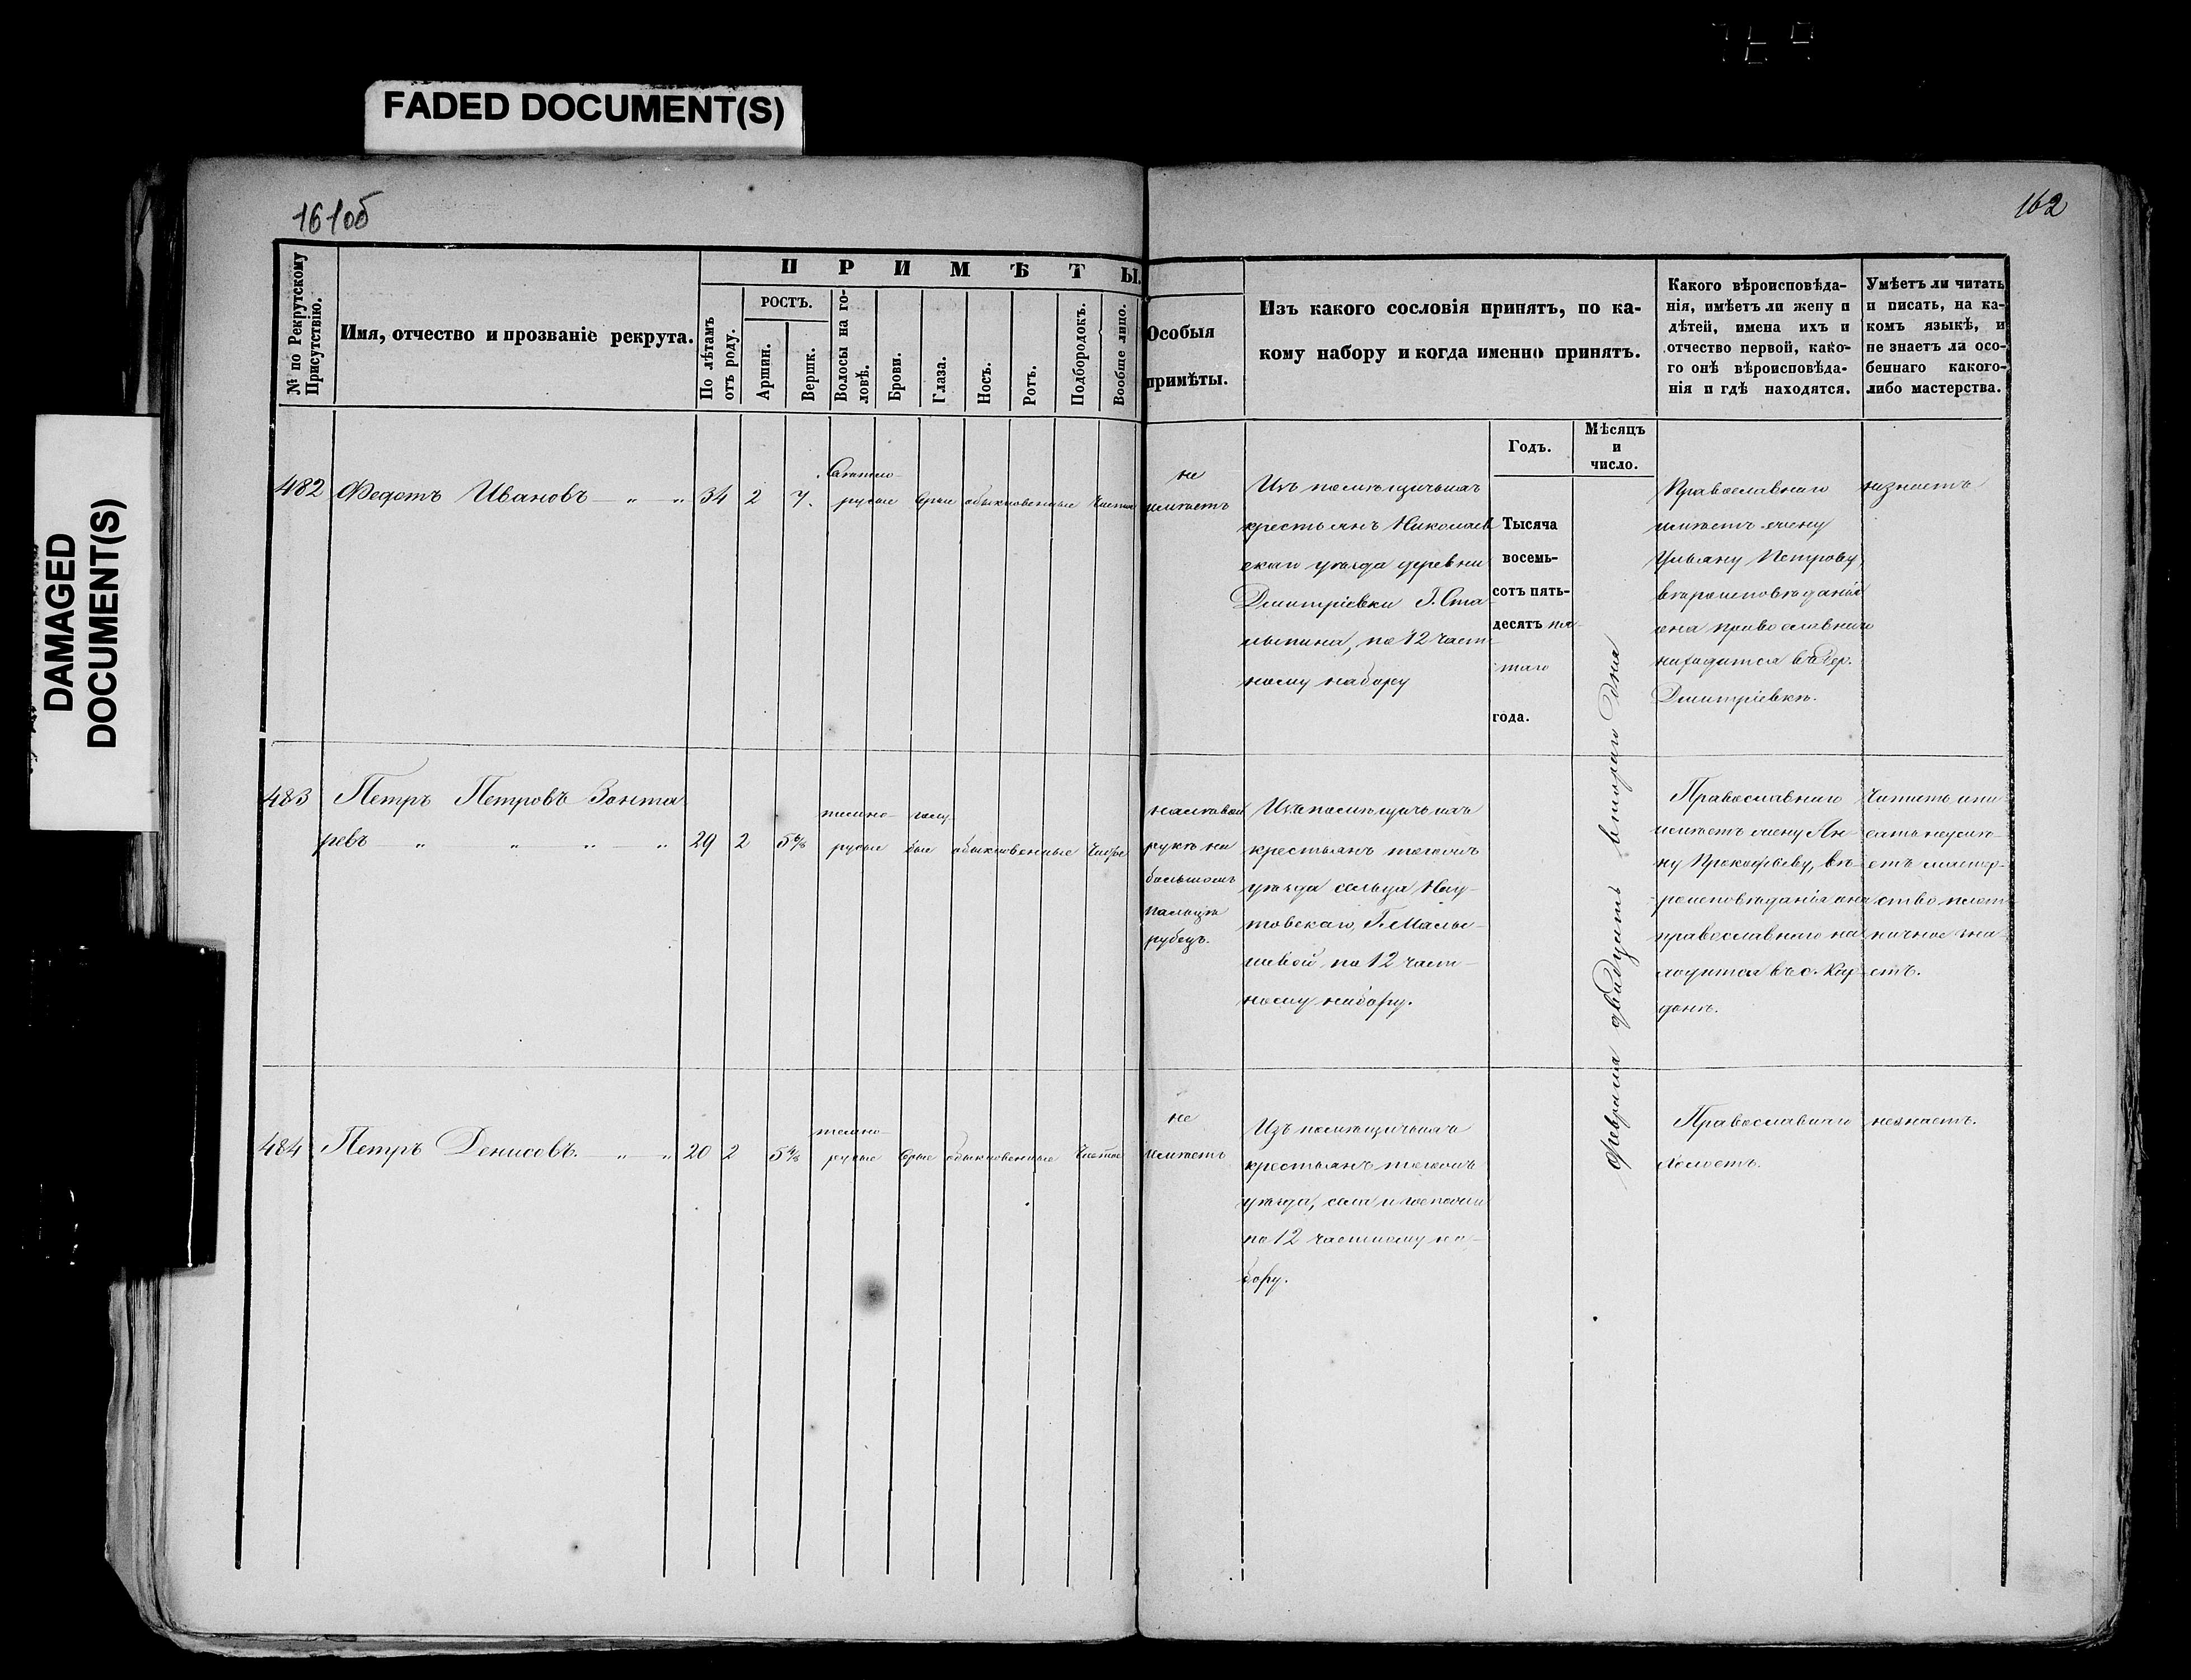 FADED DOCUMENT(S)
DAMAGED
DOCUMENT(S)
161об
162
№ по Рекрутскому
Присутствію.
Имя, отчество и прозваніе рекрута.
ПРИМѢТЫ.
По лѣтамъ
отъ роду.
РОСТЪ.
Аршин.
Вершк.
Волосы на го-
ловѣ.
Брови.
Глаза.
Носъ.
Ротъ.
Подбородокъ.
Вообще лицо.
Особыя
примѣты.
Изъ какого сословія принятъ, по ка-
кому набору и когда именно принятъ.
Годъ.
Мѣсяцъ
и
число.
Какого вѣроисповѣда-
нія, имѣетъ ли жену и
дѣтей, имена ихъ и
отчество первой, како-
го онѣ вѣроисповѣда-
нія и гдѣ находятся.
Умѣетъ ли читать
и писать, на ка-
комъ языкѣ, и
не знаетъ ли осо-
беннаго какого-
либо мастерства.
482 Федотъ Ивановъ 34 2 7.
Светло-
русые серые обыкновенные чистое
не
имѣетъ
Изъ помѣщичьихъ
крестьянъ Николаев
скаго уѣзда деревни
Дмитріевки Г. Ста
лыпина, по 12 част-
ному набору
Тысяча
восемь-
сотъ пять-
десятъ пя-
таго
года.
февраля двадцать втораго дня
Православнаго
имѣетъ жену
Ульяну Петрову
вѣроисповѣданія
она православнаго
находится въ дер.
Дмитріевкѣ.
незнаетъ
483 Петръ Петровъ Зонта
ревъ 29 2 5 6/8
темно-
русые
голу-
бые обыкновенные чистое
на лѣвой
рукѣ на
большомъ
пальцѣ
рубецъ.
Изъ помѣщичьихъ
крестьянъ тогожъ
уѣзда сельца
товскаго, Г. Малы-
шевой, по 12 част-
ному набору.
Православнаго
имѣетъ жену Ан-
ну Прокофьеву, вѣ-
роисповѣданія она
православнаго на-
ходится въ с.
читать и пи-
сать неумѣ-
етъ мастер-
ство плот-
ничное зна-
етъ.
484 Петръ Денисовъ. 20 2 5 4/8
темно-
русые серые обыкновенные чистое
не
имѣетъ
Изъ помѣщичьихъ
крестьянъ тогожъ
уѣзда, села и госпожи
по 12 частному на-
бору.
Православнаго
холостъ.
незнаетъ.